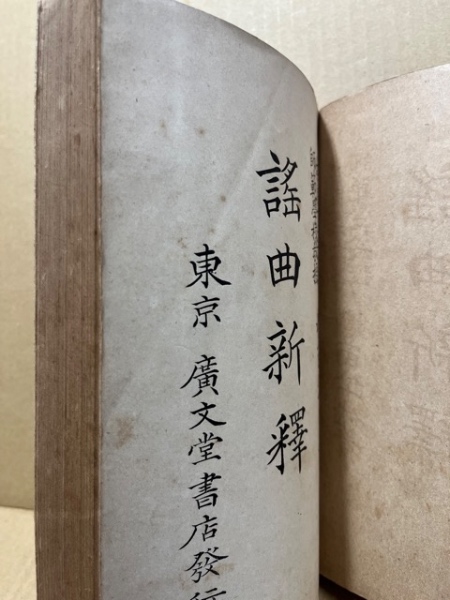 謡曲新釋
東京 廣文堂書店發行